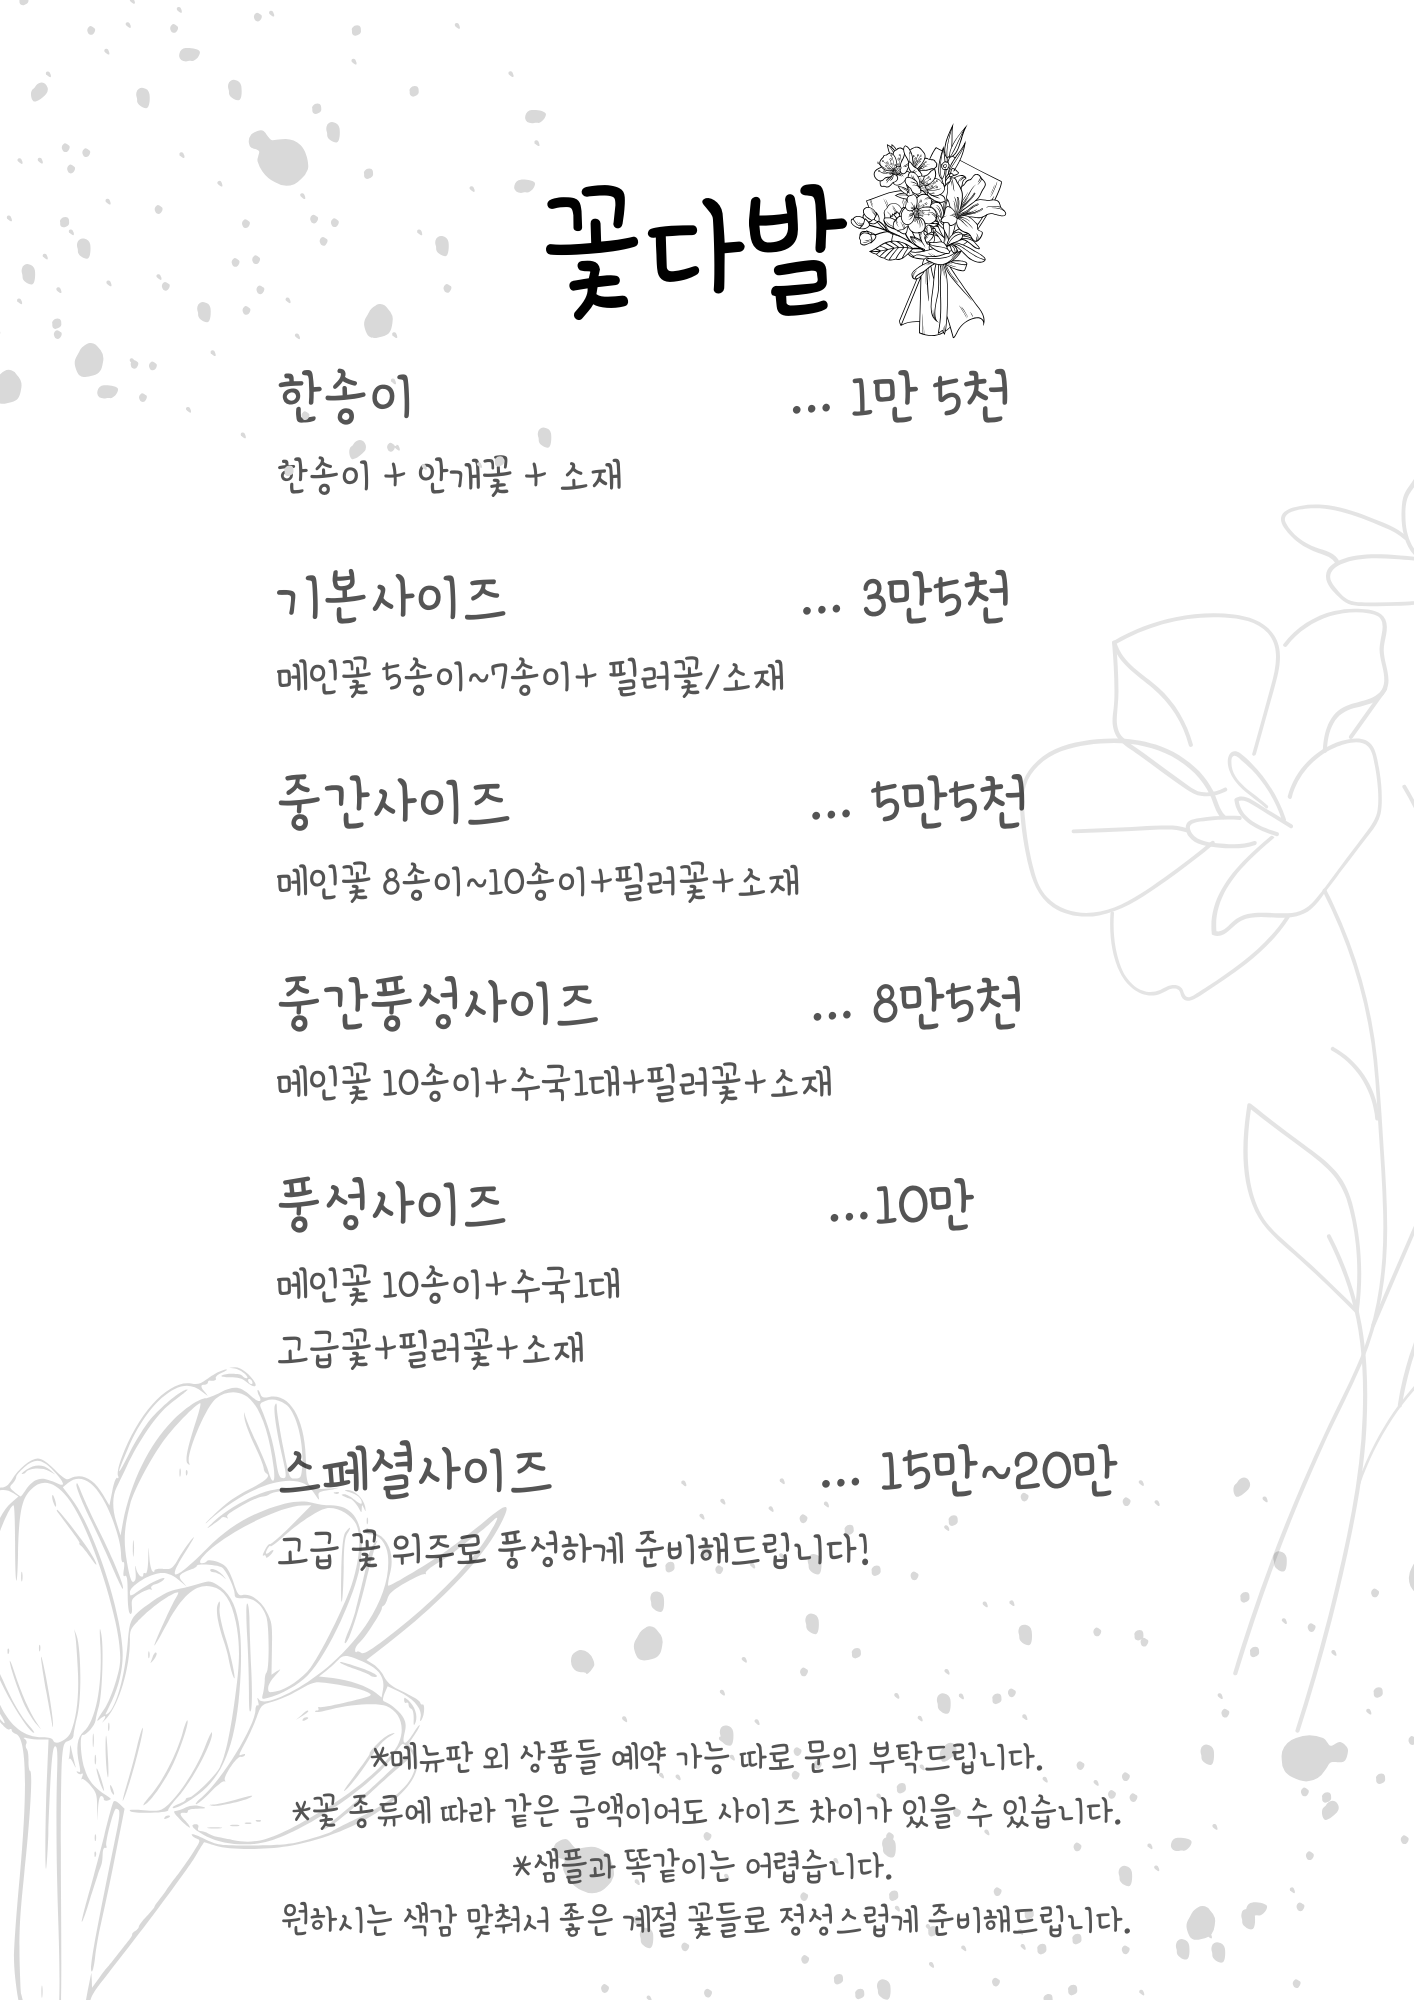 꽃다발
한송이 ... 1만 5천
한송이 + 안개꽃 + 소재
기본사이즈 ... 3만5천
메인꽃 5송이~7송이+ 필러꽃/소재
중간사이즈 ... 5만5천
메인꽃 8송이~10송이+필러꽃+소재
중간풍성사이즈 ... 8만5천
메인꽃 10송이+수국1대+필러꽃+소재
풍성사이즈 ...10만
메인꽃 10송이+수국1대
고급꽃+필러꽃+소재
스페셜사이즈 ... 15만~20만
고급 꽃 위주로 풍성하게 준비해드립니다!
*메뉴판 외 상품들 예약 가능 따로 문의 부탁드립니다.
*꽃 종류에 따라 같은 금액이어도 사이즈 차이가 있을 수 있습니다.
*샘플과 똑같이는 어렵습니다.
원하시는 색감 맞춰서 좋은 계절 꽃들로 정성스럽게 준비해드립니다.